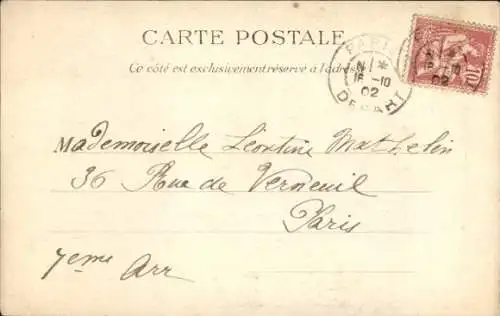 CARTE POSTALE
Ce côté est exclusivement réservé à l'adresse
PARIS
18 -10
02
DEPART
10
Mademoiselle Léontine Mathelin
36 Rue de Verneuil
Paris
7eme Arr